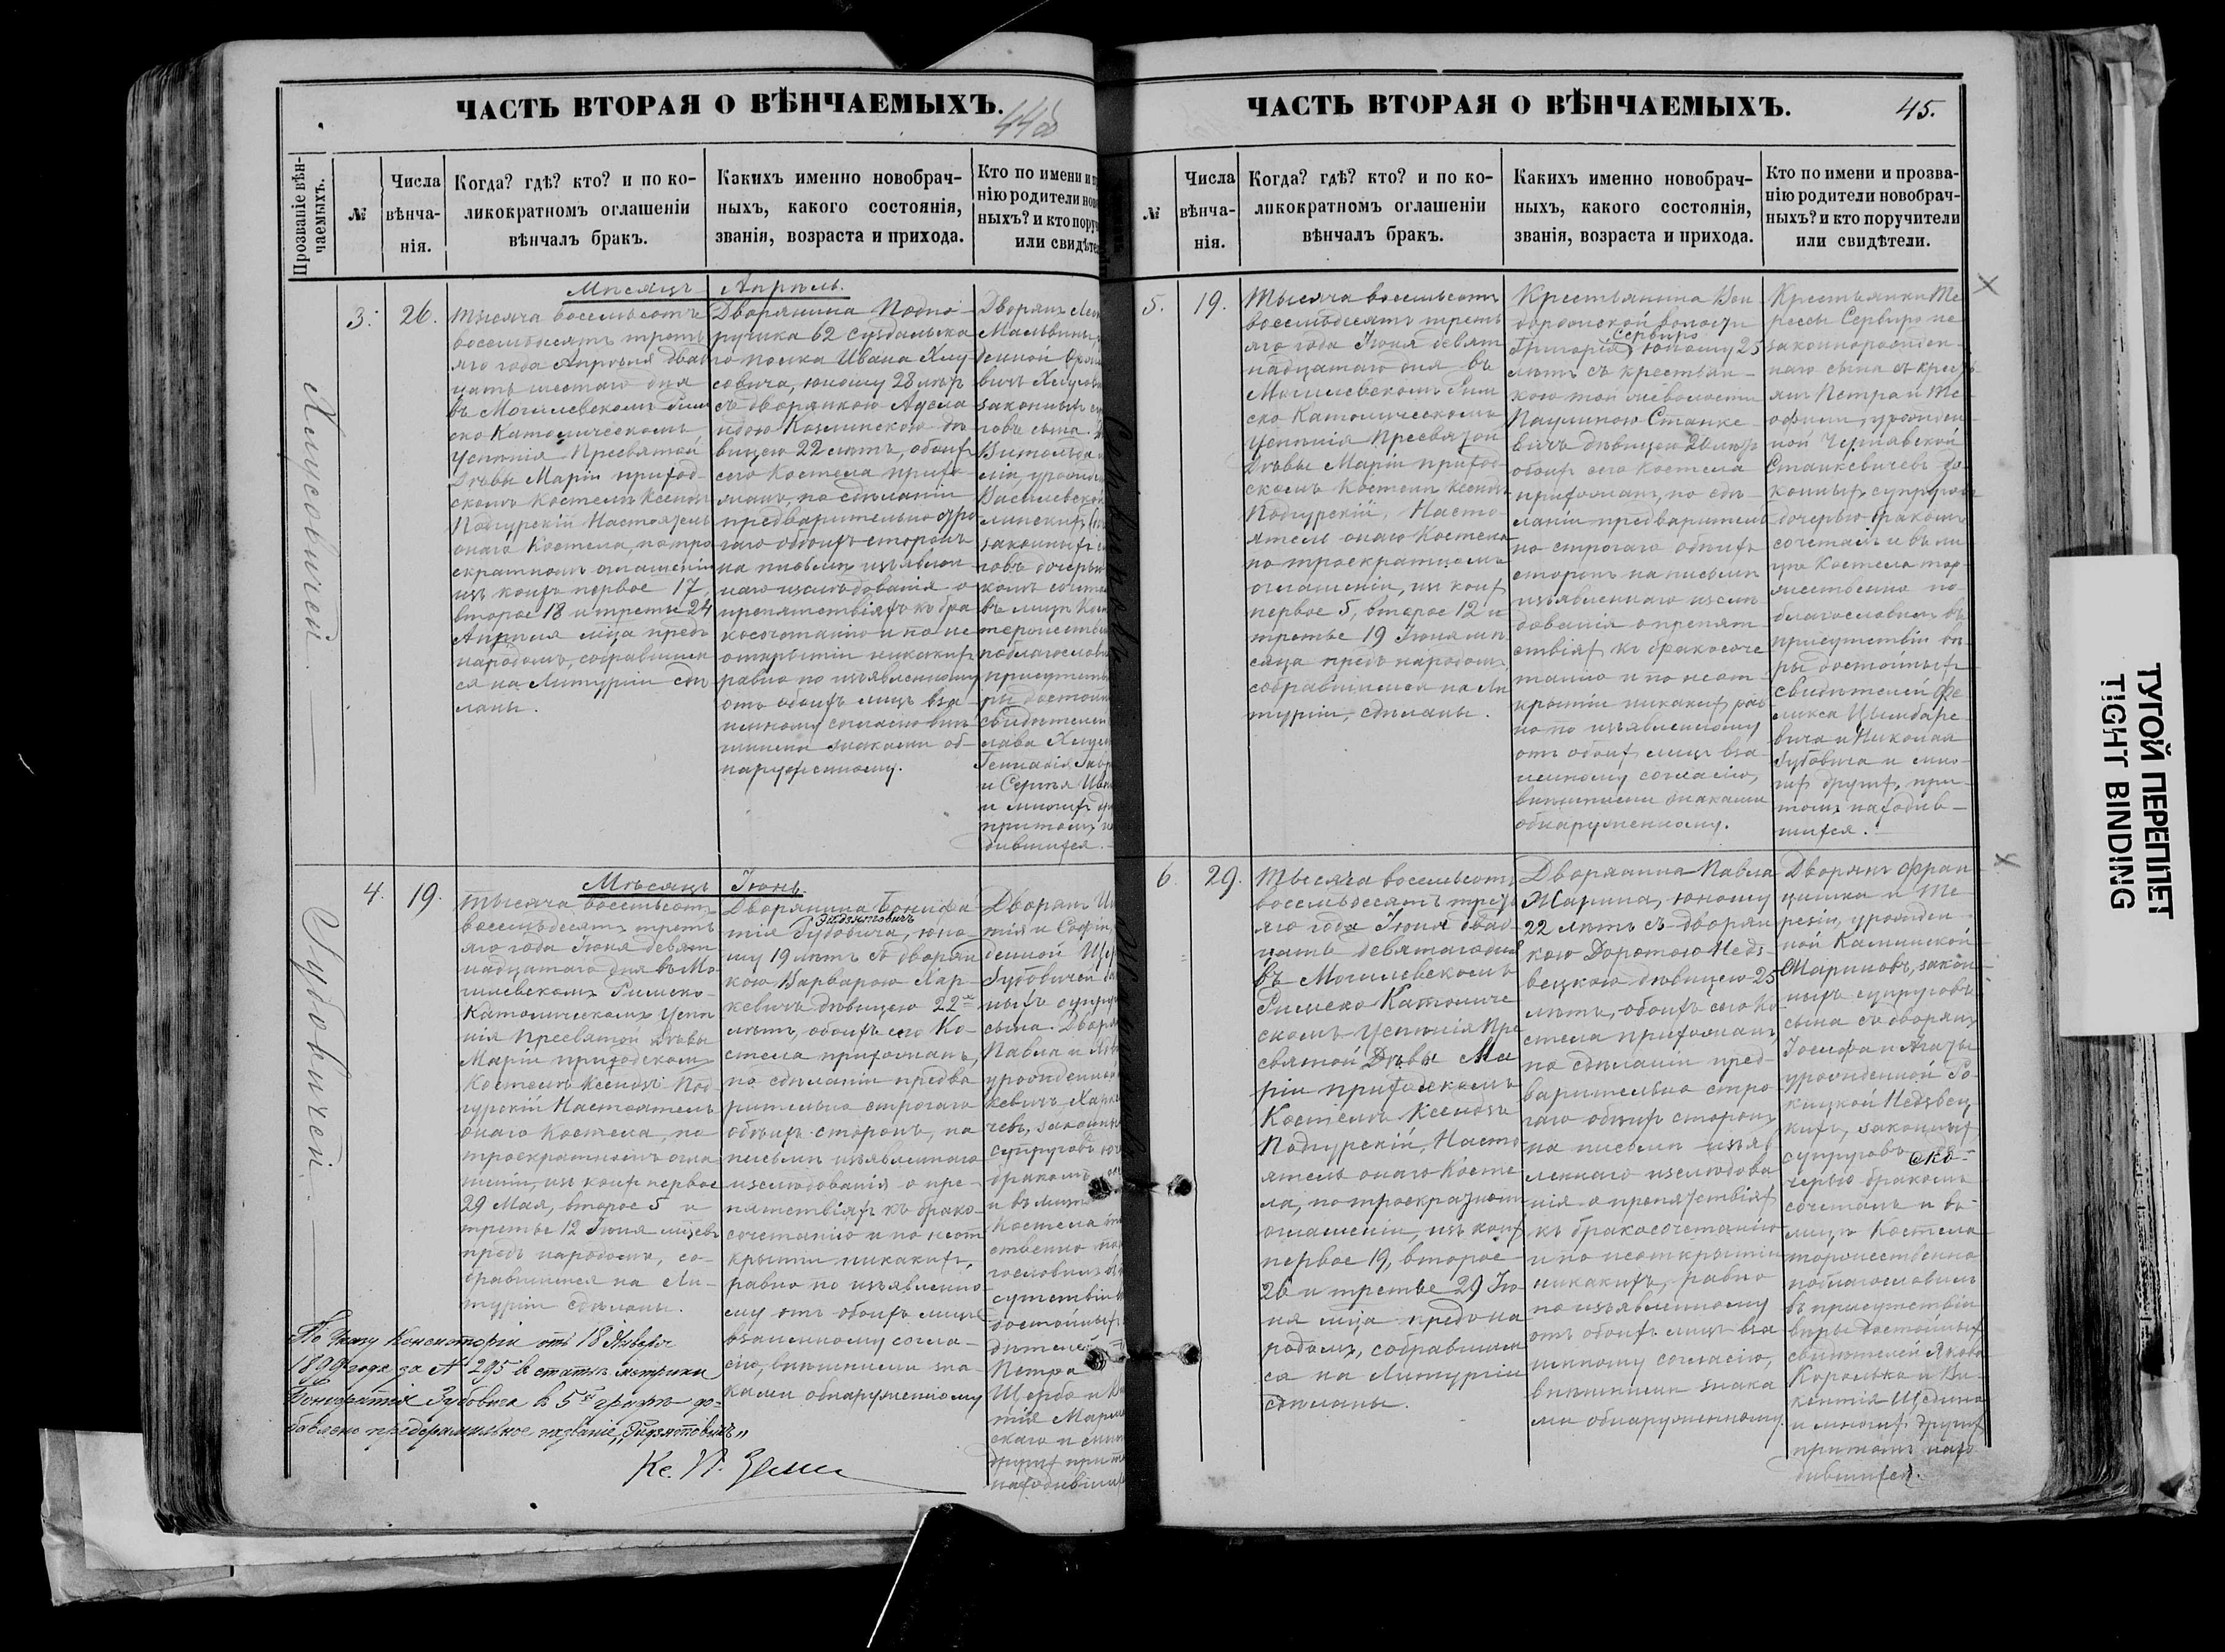 ЧАСТЬ ВТОРАЯ О ВѢНЧАЕМЫХЪ.
44об
Прозваніе вѣн-
чаемыхъ.
№
Числа
вѣнча-
нія.
Когда? гдѣ? кто? и по ко-
ликократномъ оглашеніи
вѣнчалъ бракъ.
Какихъ именно новобрач-
ныхъ, какого состоянія,
званія, возраста и прихода.
Кто по имени и
нію родители
ныхъ? и кто
или
Мѣсяцъ Апрѣль.
Хмусовичей
3.
26.
Тысяча восемьсотъ
восемьдесятъ треть
яго года Апрѣля двад
цать шестаго дня
въ Могилевскомъ Рим
ско Католическомъ
Успѣнія Пресвятой
Дѣвы Маріи приход-
скомъ Костелѣ Ксендзъ
Подгурскій Настоятель
онаго Костела, по тро
екратномъ оглашеніи
изъ коихъ первое 17,
второе 18 и третье 24
Апрѣля м҃ца предъ
народомъ, собравшим
ся на Литургіи сдѣ
ланы.
Дворянина Подпо-
ручика 62 Суздальска
го полка Ивана Хму
совича, юношу 28 лѣтъ
съ дворянкою Аделаи
идою Козлинскою дѣ
вицею 22 лѣтъ, обоихъ
сего Костела прихо-
жанъ, по сдѣланіи
предварительно стро
гаго обоихъ сторонъ
на письмѣ изъявлен
наго изслѣдованія о
препятствіяхъ къ бра
косочетанію и по не
открытіи никакихъ
равно по изъявленному
отъ обоихъ лицъ вза-
имному согласію внѣ
шними знаками об-
наруженному.
Дворянъ
Мальвины,
денной
вичъ
законныхъ
говъ сына.
Витольда
ліи, урожден
Василевской
линскихъ
законныхъ
говъ дочерью
комъ сочета
въ лицѣ Кос
торжествен
поблагослови
присутстві
ры достойн
свидѣтелей
слава
Геннадія
и Сергѣя
и многихъ др
притомъ на
дившихся.
Мѣсяцъ Іюнь.
Губовичей
4.
19.
Тысяча восемьсотъ
восемьдесятъ треть
яго года Іюня девят
надцатаго дня въ Мо-
гилевскомъ Римско-
Католическомъ Успѣ
нія Пресвятой Дѣвы
Маріи приходскомъ
Костелѣ Ксендзъ Под
гурскій Настоятель
онаго Костела, по
троекратномъ огла
шеніи, изъ коихъ первое
29 Мая, второе 5 и
третье 12 Іюня м҃цевъ
предъ народомъ, со-
бравшимся на Ли-
тургіи сдѣланы.
Дворянина Бонифа
Эйдзятовичъ
тія Губовича, юно-
шу 19 лѣтъ съ дворян
кою Варварою Хар-
кевичъ дѣвицею 22хъ
лѣтъ, обоихъ сего Ко-
стела прихожанъ,
по сдѣланіи предва
рительно строгаго
обоихъ сторонъ, на
письмѣ изъявленнаго
изслѣдованія о пре-
пятствіяхъ къ брако-
сочетанію и по неот
крытіи никакихъ,
равно по изъявленно
му отъ обоихъ лицъ
взаимному согла-
сію, внѣшними зна-
ками обнаруженному
Дворянъ
тія и Софіи,
денной
Губовичей
ныхъ супру
сына. Дворя
Павла и
урожденной
кевичъ
чей, законны
супруговъ
бракомъ
и въ лицѣ
Костела
ственно
гословилъ
сутствіи
достойныхъ
дѣтелей
Петра
Щербо и
тія
скаго и мно
другихъ прито
находившихся
По Указу Консисторіи отъ 18 Января
1899 года за № 295 въ статьѣ метрики
Бонифатія Губовича въ 5й графѣ до-
бавлено предфамильное названіе „Эйдзятовичъ"
ЧАСТЬ ВТОРАЯ О ВѢНЧАЕМЫХЪ.
45.
№
Числа
вѣнча-
нія.
Когда? гдѣ? кто? и по ко-
ликократномъ оглашеніи
вѣнчалъ бракъ.
Какихъ именно новобрач-
ныхъ, какого состоянія,
званія, возраста и прихода.
Кто по имени и прозва-
нію родители новобрач-
ныхъ? и кто поручители
или свидѣтели.
5.
19.
Тысяча восемьсотъ
восемьдесятъ треть
яго года Іюня девят
надцатаго дня въ
Могилевскомъ Рим
ско Католическомъ
Успѣнія Пресвятой
Дѣвы Маріи приход-
скомъ Костелѣ Ксендзъ
Подгурскій, Насто-
ятель онаго Костела
по троекратномъ
оглашеніи, изъ коихъ
первое 5, второе 12 и
третье 19 Іюня мѣ
сяца предъ народомъ
собравшимся на Ли
тургіи, сдѣланы.
Крестьянина
волости
Сервиро
Григорія юношу 25
лѣтъ съ крестьян-
кою той же волости
Паулиною Станке-
вичъ дѣвицею 20 лѣтъ
обоихъ сего Костела
прихожанъ, по сдѣ-
ланіи предваритель
но строгаго обоихъ
сторонъ на письмѣ
изъявленнаго изслѣ-
дованія о препят-
ствіяхъ къ бракосоче
танію и по неот-
крытіи никакихъ рав
но по изъявленному
отъ обоихъ лицъ вза
имному согласію,
внѣшними знаками
обнаруженному.
Крестьянки Те
рессы Сервиро не
законнорожден-
наго сына съ кресть-
янъ Петра и Те-
офили, урожден-
ной Чернявской
Станкевичевъ за-
конныхъ супруговъ
дочерью бракомъ
сочеталъ и въ ли
цѣ Костела тор-
жественно по-
благословилъ въ
присутствіи вѣ
ры достойныхъ
свидѣтелей Фе
ликса Цымбаре-
вича и Николая
Губовича и мно-
гихъ другихъ, при
томъ находив-
шихся.
6.
29.
Тысяча восемьсотъ
восемьдесятъ треть
яго года Іюня двад
цать девятаго дня
въ Могилевскомъ
Римско Католиче
скомъ Успѣнія Пре
святой Дѣвы Ма
ріи приходскомъ
Костелѣ Ксендзъ
Подгурскій, Насто
ятель онаго Косте
ла, по троекратномъ
оглашеніи, изъ коихъ
первое 19, второе
26 и третье 29 Ію
ня м҃ца предъ на
родомъ, собравшим
ся на Литургіи
сдѣланы.
Дворянина Павла
Марина, юношу
22 лѣтъ съ дворян
кою Доротою Недз-
вецкою дѣвицею 25
лѣтъ, обоихъ сего Ко
стела прихожанъ,
по сдѣланіи пред-
варительно стро
гаго обоихъ сторонъ
на письмѣ изъяв
леннаго изслѣдова
нія о препятствіяхъ
къ бракосочетанію
и по неоткрытіи
никакихъ, равно
по изъявленному
отъ обоихъ лицъ вза
имному согласію,
внѣшними знака
ми обнаруженному
Дворянъ Фран
цишка и Те
резіи, урожден-
ной Калинской
Мариновъ, закон-
ныхъ супруговъ
сына съ дворянъ
Іосифа и Агаты
урожденной
Недзвец
кихъ, законныхъ
супруговъ до-
черью бракомъ
сочеталъ и въ
лицѣ Костела
торжественно
поблагословилъ
въ присутствіи
вѣры достойныхъ
свидѣтелей Якова
Королька и Ви-
кентія
и многихъ другихъ
притомъ нахо
дившихся.
ТУГОЙ ПЕРЕПЛЕТ
TIGHT BINDING